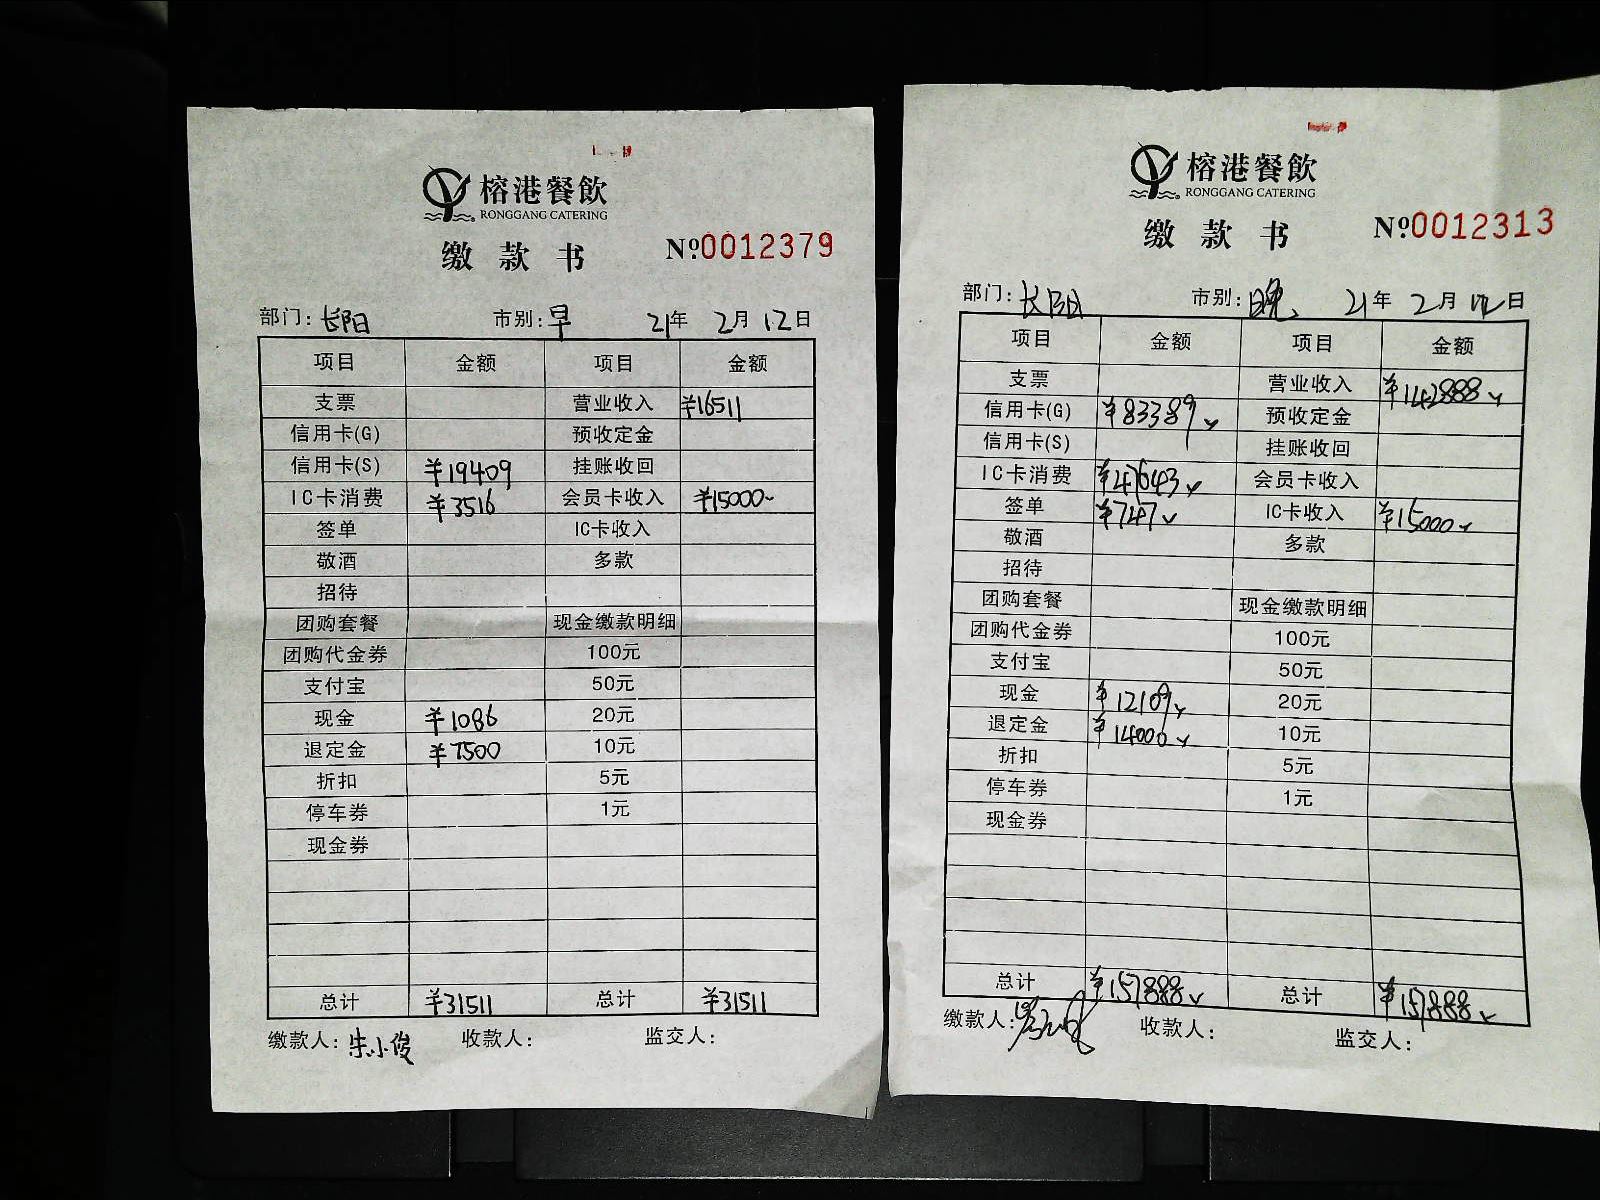 榕港餐飲
RONGGANG CATERING
缴款书 Nº0012379
部门：长阳 市别：早 21年2月12日
项目 金额 项目 金额
支票 营业收入 ¥16511
信用卡(G) 预收定金
信用卡(S) ¥19409 挂账收回
IC卡消费 ¥3516 会员卡收入 ¥15000-
签单 IC卡收入
敬酒 多款
招待
团购套餐 现金缴款明细
团购代金券 100元
支付宝 50元
现金 ¥1086 20元
退定金 ¥7500 10元
折扣 5元
停车券 1元
现金券
总计 ¥31511 总计 ¥31511
缴款人：朱小俊 收款人： 监交人：
榕港餐飲
RONGGANG CATERING
缴款书 Nº0012313
部门：长阳 市别：晚 21年2月12日
项目 金额 项目 金额
支票 营业收入 ¥142888
信用卡(G) ¥83389 预收定金
信用卡(S) 挂账收回
IC卡消费 ¥47643 会员卡收入
签单 ¥747 IC卡收入 ¥15000
敬酒 多款
招待
团购套餐 现金缴款明细
团购代金券 100元
支付宝 50元
现金 ¥12109 20元
退定金 ¥14000 10元
折扣 5元
停车券 1元
现金券
总计 ¥157888 总计 ¥157888
缴款人： 收款人： 监交人：